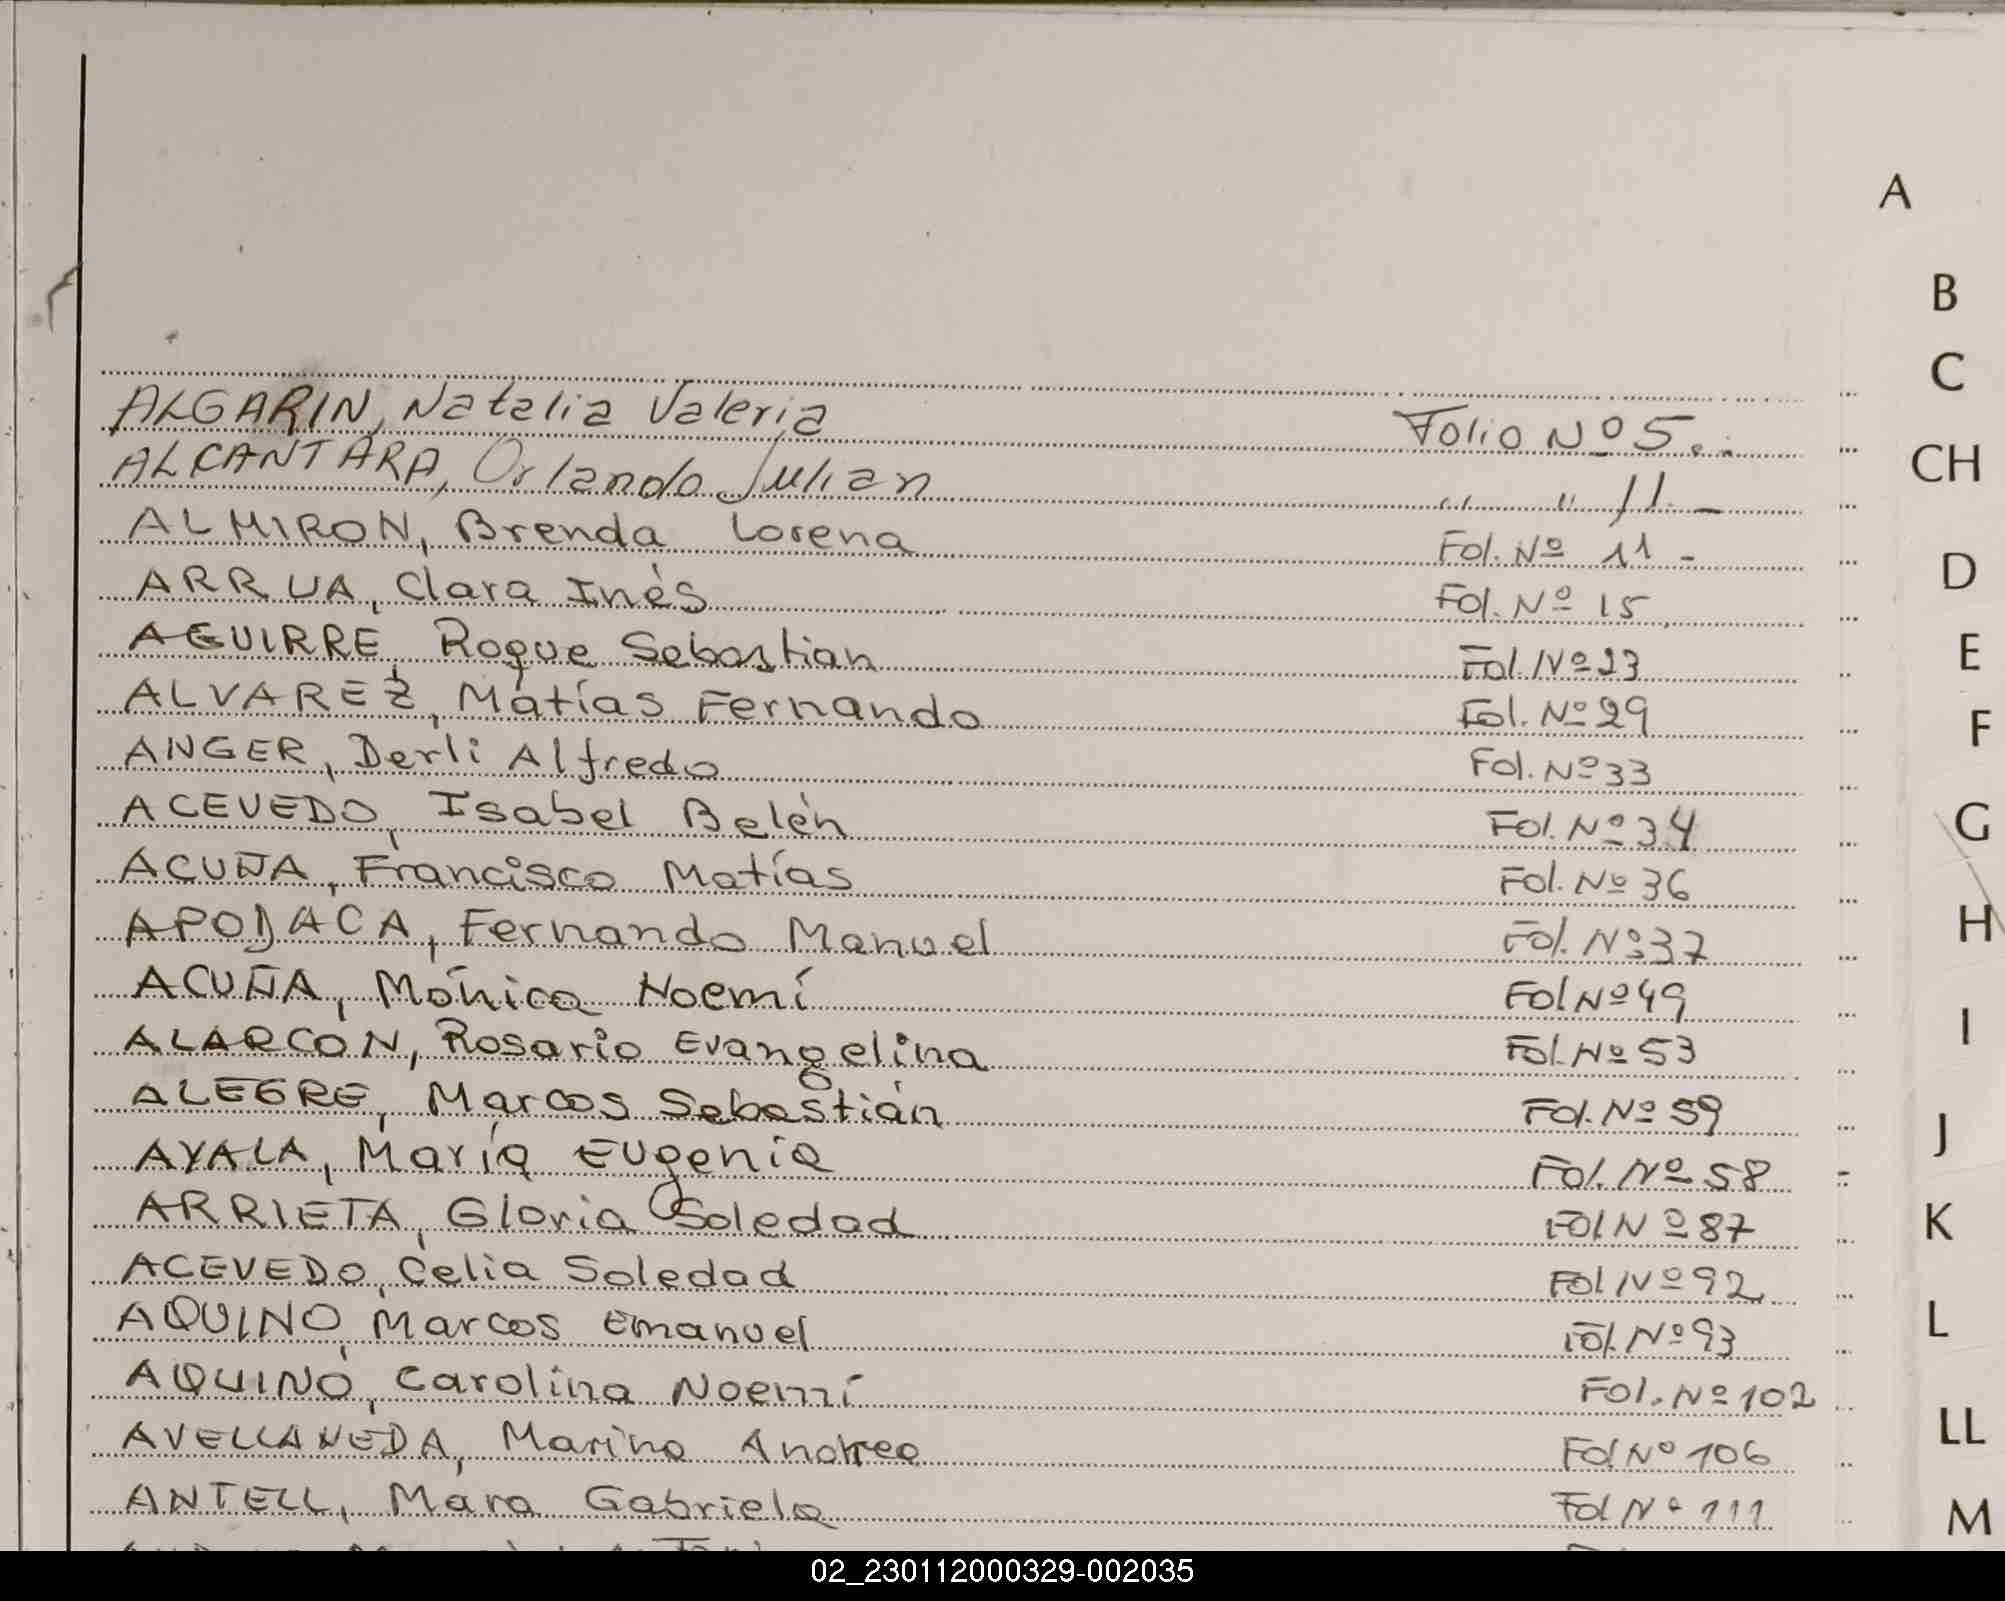 A
B
C
ALGARIN, Natalia Valeria Folio Nº 5.-
CH
ALCANTARA, Orlando Julian " " 11.-
ALMIRON, Brenda Lorena Fol. Nº 11 -
D
ARRUA, Clara Inés Fol. Nº 15
AGUIRRE, Roque Sebastian Fol. Nº 23
E
ALVAREZ, Matías Fernando Fol. Nº 29
F
ANGER, Derli Alfredo Fol. Nº 33
ACEVEDO, Isabel Belén Fol. Nº 34
G
ACUÑA, Francisco Matías Fol. Nº 36
APODACA, Fernando Manuel Fol. Nº 37
H
ACUÑA, Mónica Noemí Fol Nº 49
I
ALARCON, Rosario Evangelina Fol. Nº 53
ALEGRE, Marcos Sebastián Fol. Nº 59
J
AYALA, María Eugenia Fol. Nº 58
ARRIETA, Gloria Soledad Fol Nº 87
K
ACEVEDO, Celia Soledad Fol Nº 92
AQUINO, Marcos Emanuel Fol. Nº 93
L
AQUINO, Carolina Noemí Fol. Nº 102
LL
AVELLANEDA, Marina Andrea Fol Nº 106
ANTELL, Mara Gabriela Fol Nº 111
M
02_230112000329-002035